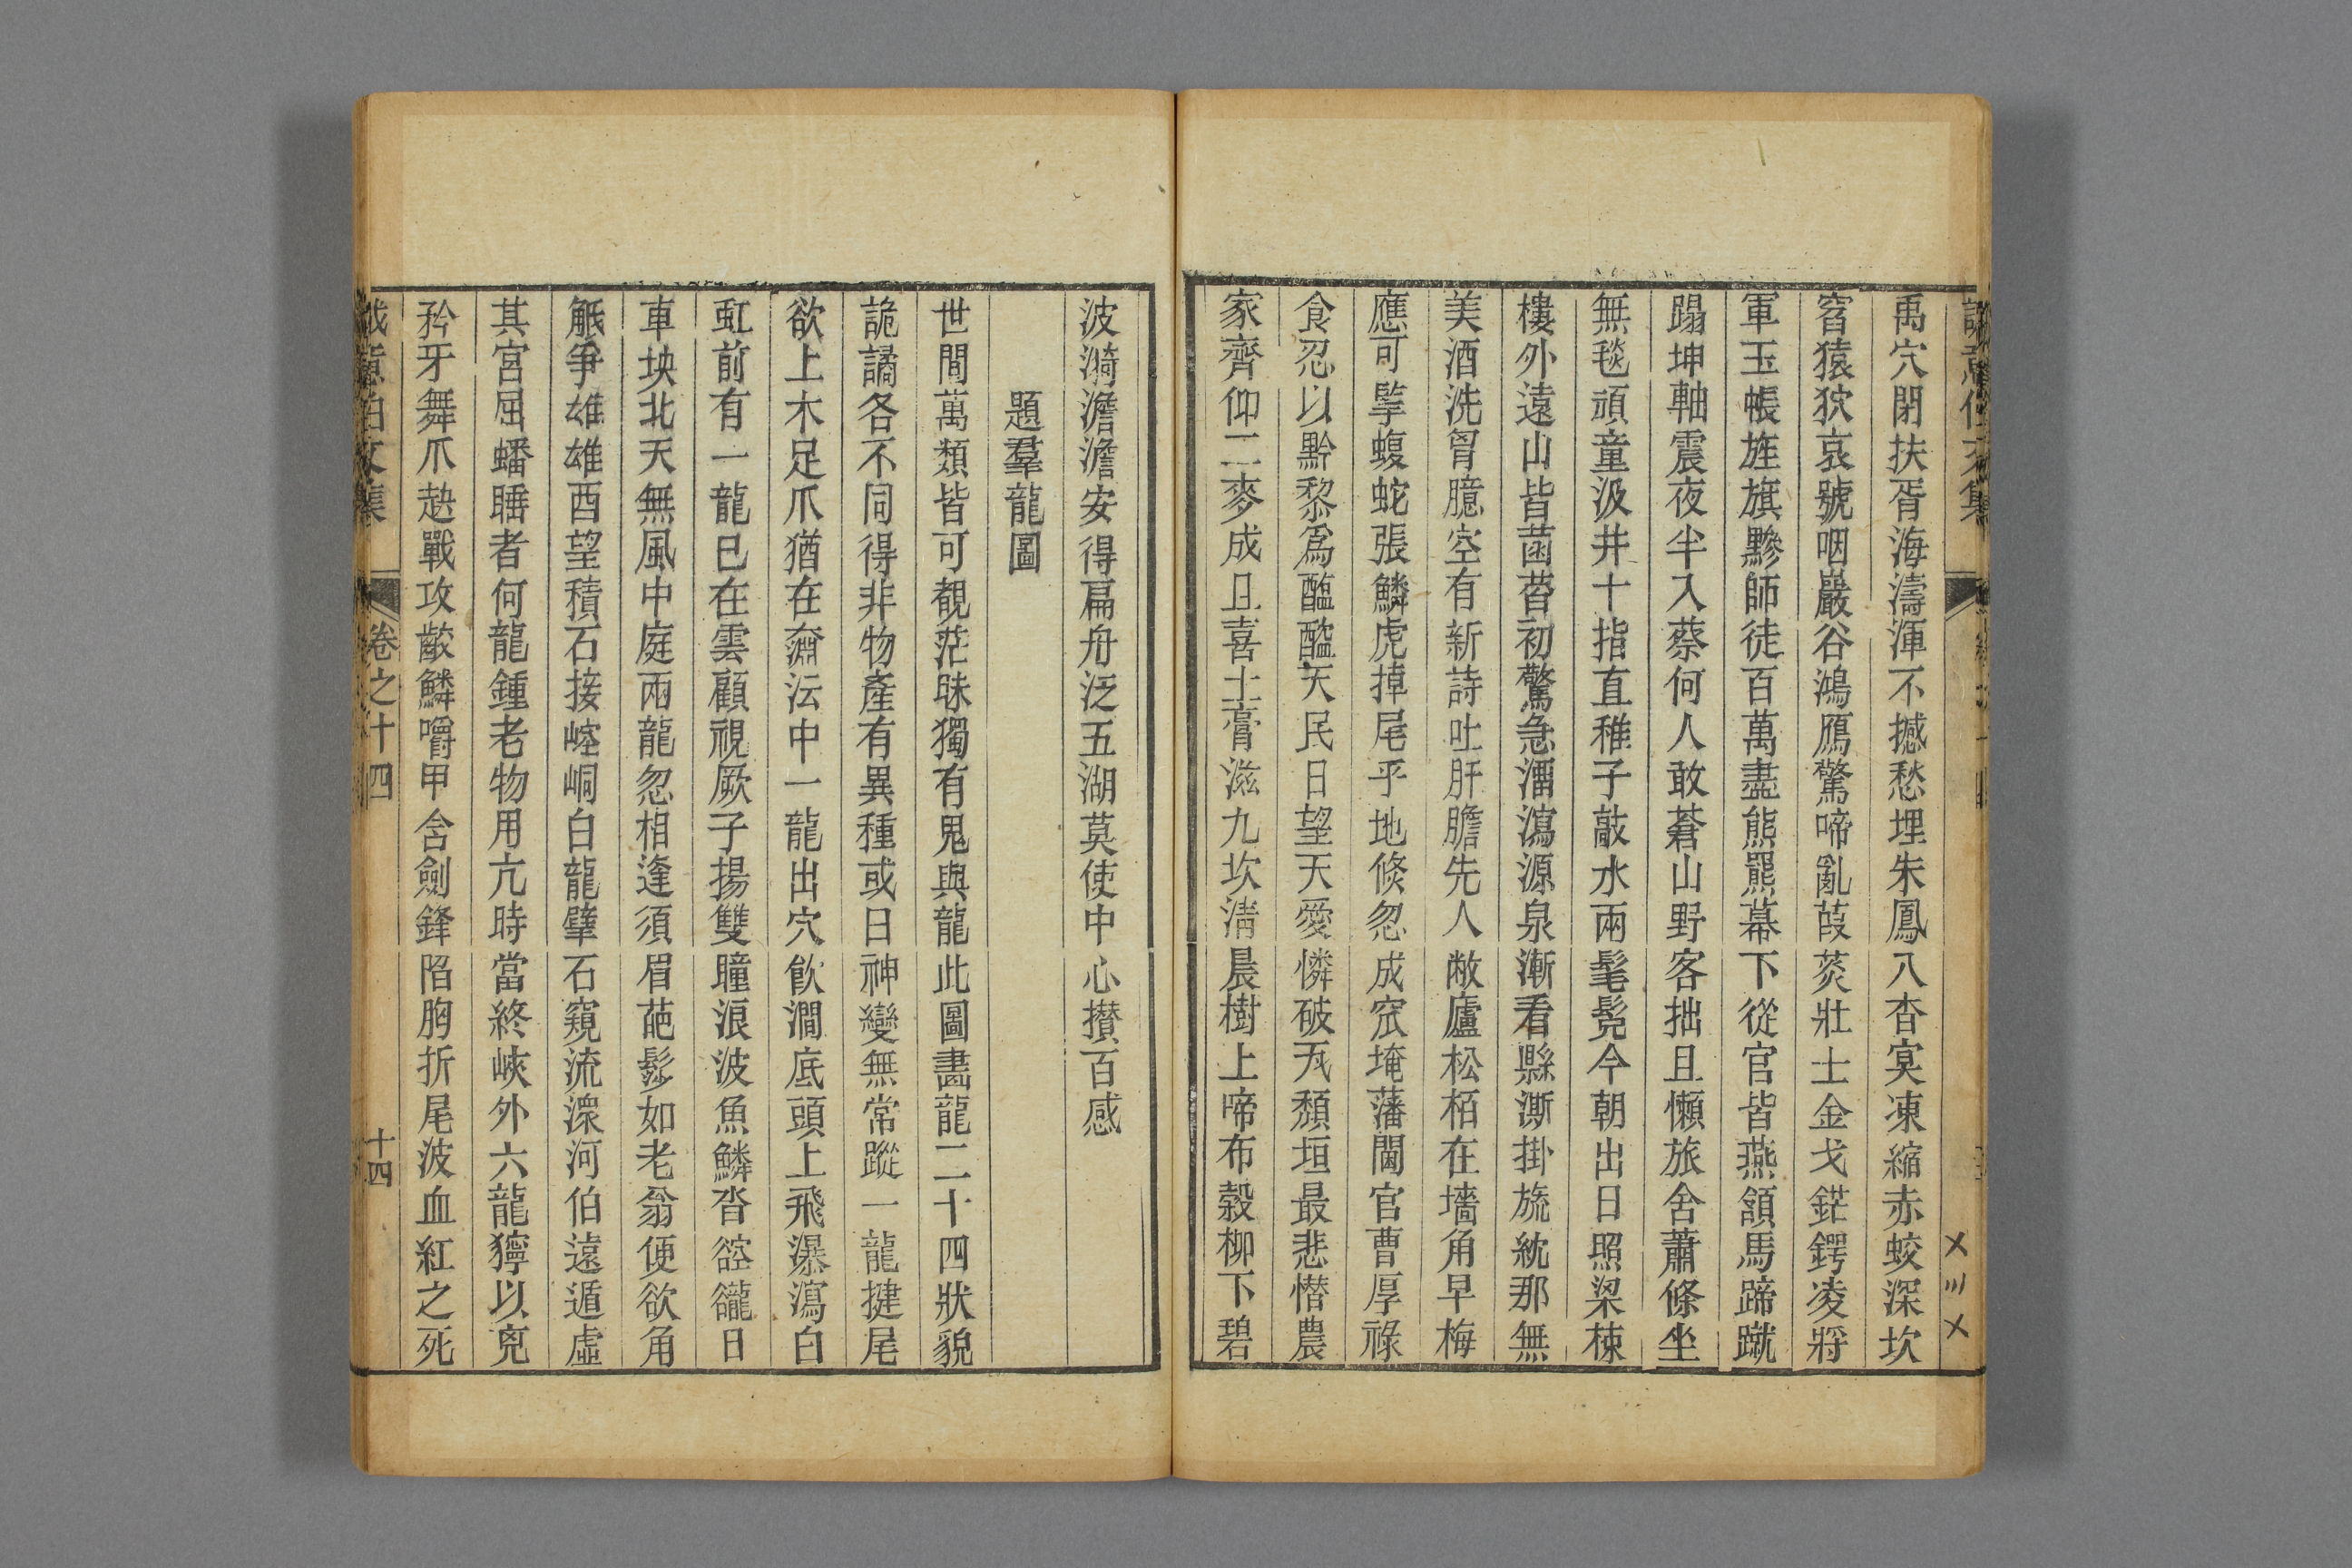 禹穴閉扶胥海濤渾不撼愁埋朱鳳八杳冥凍縮赤蛟深坎
窞猿狖哀號咽巖谷鴻鴈驚啼亂葭菼壯士金戈鋩鍔凌將
軍玉帳旌旗黲師徒百萬盡熊羆幕下從官皆燕頷馬蹄蹴
蹋坤軸震夜半入蔡何人敢蒼山野客拙且懶旅舍蕭條坐
無毯頑童汲井十指直稚子敲水兩髦髡今朝出日照梁棟
樓外遠山皆菡萏初驚急溜瀉源泉漸看縣澌掛旒紞那無
美酒洗胷臆空有新詩吐肝膽先人敝廬松栢在墻角早梅
應可擥蝮蛇張鱗虎掉尾乎地倏忽成窞埯藩閫官曹厚祿
食忍以黔黎爲醢醓天民日望天愛憐破屋頹垣最悲憯農
家齊仰二麥成且喜土膏滋九坎清晨樹上啼布穀柳下碧
波漪澹澹安得扁舟泛五湖莫使中心攢百感
題羣龍圖
世間萬類皆可覩茫昧獨有鬼與龍此圖畵龍二十四狀貌
詭譎各不同得非物產有異種或日神變無常蹤一龍揵尾
欲上木足爪猶在奫沄中一龍出穴飲澗底頭上飛瀑瀉白
虹前有一龍已在雲顧視厥子揚雙瞳浪波魚鱗沓谾豅日
車坱北天無風中庭兩龍忽相逢須眉葩髿如老翁便欲角
觝爭雄雄西望積石接崆峒白龍擘石窺流潨河伯遠遁虛
其宮屈蟠睡者何龍鍾老物用亢時當終峽外六龍獰以兇
矜牙舞爪趂戰攻齩鱗嚼甲含劍鋒陷胸折尾波血紅之死
文集
卷之十四
十四